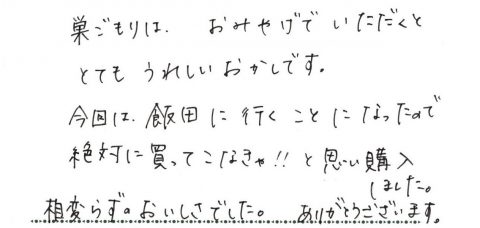 巣ごもりは、おみやげでいただくと
とてもうれしいおかしです。
今回は、飯田に行くことになったので
絶対に買ってこなきゃ!!と思い購入
しました。
相変らずのおいしさでした。ありがとうございます。